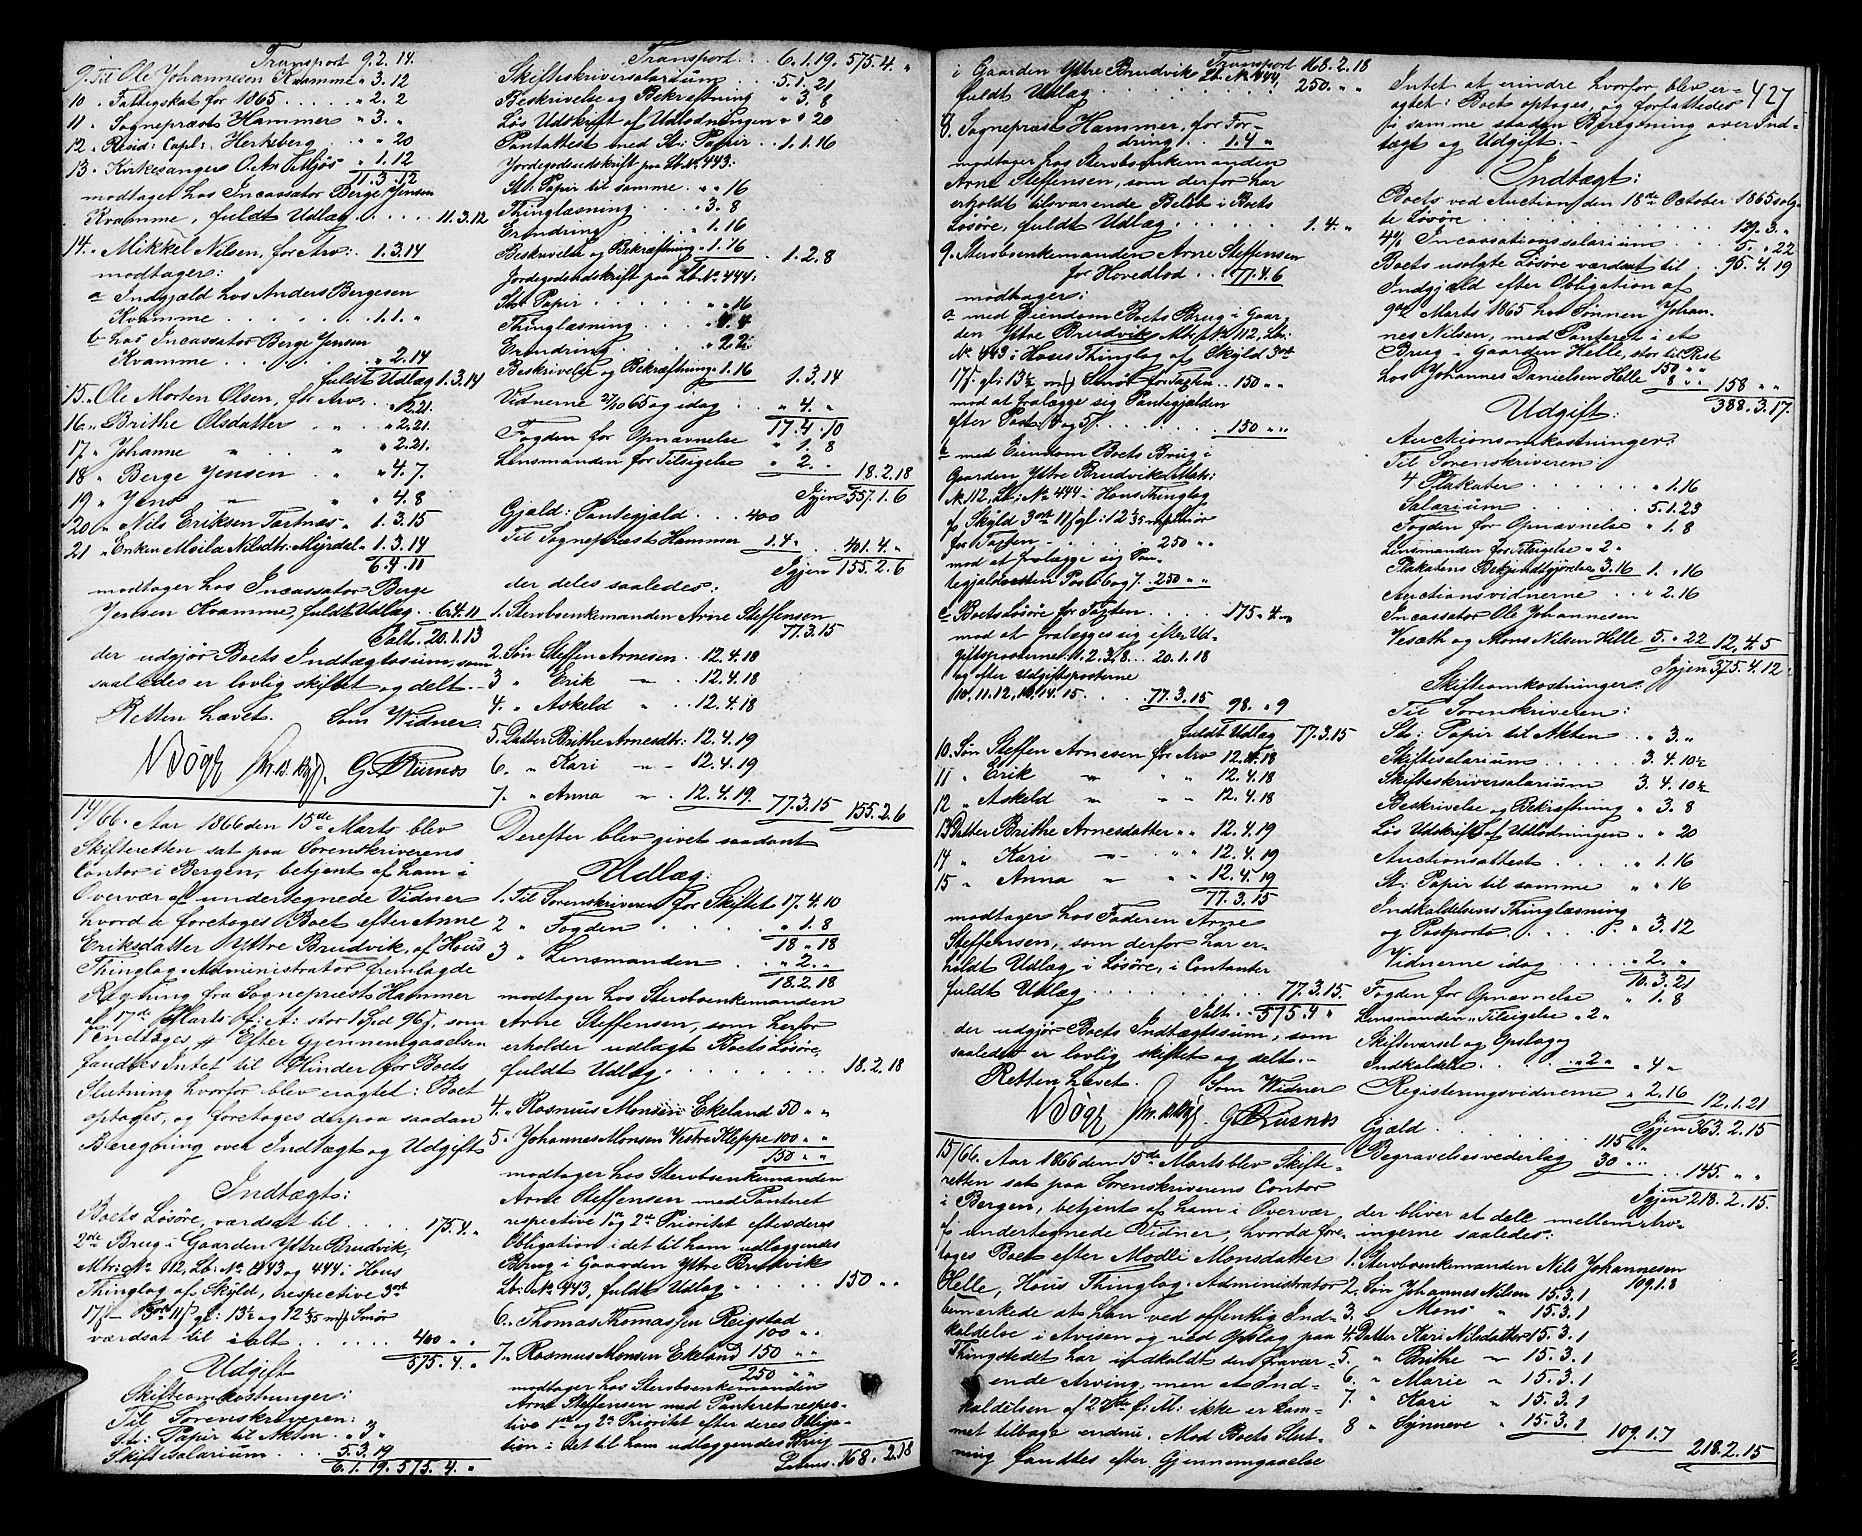 Transport 9.2.14.
9. Til Ole Johannesen Kvamme " 3.12
10 " Fattigskat for 1865 . . . . " 2. 2
11 " Sognepræst Hammer " 3. "
12 " Resid: Capl: Hertzberg " " 20
13 " Kirkesanger O. A. " 1.12
11.3.12
modtager hos Incassator Berge Jensen
Kvamme, fuldt Udlæg . . . . . 11.3.12
14. " Mikkel Nilsen, for Arv: . 1.3.14
modtager:
a Indgjæld hos Anders Bergesen
Kvamme . . . . . . . 1.1. "
b hos Incassator Berge Jensen
Kvamme . . . . . . " 2.14
fuldt Udlæg 1.3.14
15. " Ole Morten Olsen, for Arv . " 2.21.
16. " Brithe Olsdatter . . " " 2.21.
17 " Johanne " . . " " 2.21.
18 " Berge Jensen . " " 4.7.
19 " Jens " " " 4.8
20 " Nils Eriksen Tertnæs " 1.3.15
21 " Enken Moila Nilsdtr: Myrdal " 1.3.14
6.4.11
modtager hos Incassator Berge
Jensen Kvamme, fuldt Udlæg . . 6.4.11
Ialt . 20.1.13
der udgjør Boets Indtægtssum, som
saaledes er lovlig skiftet og delt. . .
Retten hævet. Som Widner
NBøgz G. Kurnos
14/66. Aar 1866 den 15de Marts blev
Skifteretten sat paa Sorenskriverens
Contor i Bergen, betjent af ham i
Overvær af undertegnede Vidner
hvorda foretoges Boet efter Anne
Eriksdatter Yttre Brudvik, af Hous
Thinglag. Administrator fremlagde
Regning fra Sognepræst Hammer
af 17de Marts f: A: stor 1 Spd 96 s, som
indtoges, Efter Gjennemgaaelsen
fandtes Intet til Hinder for Boets
Slutning hvorfor blev eragtet: Boet
optages, og foretages derpaa saadan
Beregning over Indtægt og Udgift
Indtægt:
Boets Løsøre, værdsat til . . . . 175.4. "
2de Brug i Gaarden Yttre Brudvik,
Mtr: No 112, Lb: No 443 og 444 i Hous
Thinglag af Skyld, respective 3 ort
17 s 3 ort 11 s gl: 13½ og 12 4/35 mk Smør
værdsat til ialt . . . . . . 400 " "
575.4. "
Udgift
Skifteomkostninger:
Til Sorenskriveren:
St: Papir til Akten . . " 3 "
Skiftesalarium . . . 5.3.19
6.1.19. 575.4. "
Transport . . . 6.1.19. 575.4. "
Skifteskriversalarium . . . 5.1.21
Beskrivelse og Bekræftning " 3.8
Løs Udskrift af Udlodningen " " 20
Pantattest med St: Papir . . 1.1.16
Jordegodsudskrift paa Lb: No 443:
St: Papir til samme . . " " 16
Thinglæsning . . . . " 3. 8
Erindring . . . . . " 1.16
Beskrivelse og Bekræftning " 1.16 1.2.8
Jordegodsudskrift paa Lb: No 444:
St: Papir . . . . . . " " 16
Thinglæsning . . . . " 4. 4
Erindring . . . . . " 2 2
Beskrivelse og Bekræftning " 1.16 1.3.14
Vidnerne 27/10 65 og idag . . " 4. "
17.4.10
Fogden for Opnævnelse " 1.8
Lensmanden for Tilsigelse " 2. " 18.2.18
Igjen 557.1.6
Gjæld: Pantegjæld . . . 400
Til Sognepræst Hammer 1.4. " 401.4. "
Igjen 155.2.6
der deles saaledes:
1. Stervboenkemanden Arne Steffensen
77.3.15
2. Søn Steffen Arnesen . . 12.4.18
3 " Erik " . 12.4.18
4. " Askeld " . . 12.4.18
5. Datter Brithe Arnesdtr: 12.4.19
6. " Kari " " 12.4.19
7. " Anna " . 12.4.19. 77.3.15 155.2.6
Derefter blev givet saadant
Udlæg:
1. Til Sorenskriveren for Skiftet 17.4.10
2 " Fogden . . . . . " 1.8
18 " 18
3 " Lensmanden . . " 2. "
18.2.18
modtager hos Stervboenkemanden
Arne Steffensen, som herfor
erholder udlagt Boets Løsøre,
fuldt Udlæg . . . . . . . 18.2.18
4. " Rasmus Monsen Ekeland 50 " "
5. " Johannes Monsen Vestre Kleppe 100 " "
150 " "
modtager hos Stervboenkemanden
Arne Steffensen med Panteret
respective 1ste og 2den Prioritet efter deres
Obligation i det til ham udlæggendes
Brug i Gaarden Yttre Brudvik
Lb: No 443, fuldt Udlæg . . . . . 150 " "
6. " Thomas Thomassen Reigstad
100 " "
7. " Rasmus Monsen Ekeland 150 " "
250 " "
modtager hos Stervboenkemanden
Arne Steffensen med Panteret respec-
tive 1ste og 2den Prioritet efter deres Obliga-
tion i det til ham udlæggendes Brug
Latus . 168.2.18
Transport 168.2.18
i Gaarden Yttre Brudvik Lb: No 444,
fuldt Udlæg . . . . . . . . 250. " "
8. Sognepræst Hammer, for For-
dring . . . 1.4 "
modtager hos Stervboenkemanden
Arne Steffensen, som derfor har
erholdt tilsvarende Beløb i Boets
Løsøre, fuldt Udlæg . . . . . . 1.4. "
9. Stervboenkemanden Arne Steffensen
for Hovedlod . . . 77.4.6
modtager:
a med Eiendom Boets Brug i Gaar-
den Yttre Brudvik Mtr: No 112, Lb:
No 443 i Hous Thinglag af Skyld 3 ort
17 s gl: 13½ mk Smør for Taxten . . 150 " "
mod at fralægge sig Pantegjælden
efter Post 4 og 5 . . . . . . 150 " "
b med Eiendom Boets Brug i
Gaarden Yttre Brudvik Mtr:
No 112, Lb: No 444 i Hous Thinglag
af Skyld 3 ort 11 s gl: 12 4/35 mk Smør
for Taxten . . . . . 250 " "
mod at fralægge sig Pan-
tegjælden efter Post 6 og 7 . . 250 " "
c Boets Løsøre for Taxten . . . . 175. 4. "
mod at fralægge sig efter Ud-
giftsposterne 1. 2. 3. 8. . . 20.1.18
og efter Udgiftsposterne
10. 11. 12. 13. 14. 15 . . . 77.3.15
98. " 9
fuldt Udlæg 77.3.15
10. Søn Steffen Arnesen for Arv 12.4.18
11 " Erik " " " 12.4.18
12 " Askeld " " " 12.4.18
13 Datter Brithe Arnesdatter " " 12.4.19
14 " Kari " " " 12.4.19
15 " Anna " " " 12.4.19
77.3.15
modtager hos Faderen Arne
Steffensen, som derfor har er-
holdt Udlæg i Løsøre, i Contanter
fuldt Udlæg . . . . . . . . 77.3.15.
Ialt . . 575.4 "
der udgjør Boets Indtægtssum, som
saaledes er lovlig skiftet og delt. –
Retten hævet. Som Widner
NBøgz G. Kurnos
15/66. Aar 1866 den 15de Marts blev Skifte-
retten sat paa Sorenskriverens Contor
i Bergen, betjent af ham i Overvær
af undertegnede Vidner, hvorda fore-
toges Boet efter Modli Monsdatter
Helle, Hous Thinglag. Administrator
bemærkede at han ved offentlig Ind-
kaldelse i Avisen og ved Opslag paa
Thingstedet har indkaldt den fravær-
ende Arving, men at Ind-
kaldelsen af 27de f: M: ikke er kom-
met tilbage endnu. Mod Boets Slut-
ning fandtes efter Gjennemgaaelse
427
Intet at erindre hvorfor blev er-
agtet: Boet optages, og forfattedes
i samme saadan Beregning over Ind-
tægt og Udgift. –
Indtægt:
Boets ved Auction den 18de October 1865 solg-
te Løsøre . . . . . . . . 129.3. "
4% Incassationssalarium . . . 5. " 22
Boets usolgte Løsøre værdsat til . 95.4.19
Indgjæld efter Obligation af
9de Marts 1865 hos Sønnen Johan-
nes Nilsen, med Panteret i et
Brug i Gaarden Helle, stor til Rest 150 " "
hos Johannes Danielsen Helle 8 " " 158 " "
388.3.17.
Udgift:
Auctionsomkostninger:
Til Sorenskriveren:
4 Plakater . . . . . " 1.16
Salarium . . . . . 5.1.23
Fogden for Opnævnelse " 1.8
Lensmanden for Tilsigelse " 2 "
Plakatens Bekjendtgjørelse 3.16 1. " 16
Auctionsvidnerne . . " 2.16
Incassator Ole Johannesen
Vesæth og Mons Nilsen Helle 5. " 22 12.4.5
Igjen 375.4.12.
Skifteomkostninger:
Til Sorenskriveren:
St: Papir til Akten . . " 3. "
Skiftesalarium . . . . . 3.4.10½
Skifteskriversalarium 3.4.10½
Beskrivelse og Bekræftning " 3.8
Løs Udskrift af Udlodningen " " 20
Auctionsattest . . . . " 1.16
St: Papir til samme " " 16
Indkaldelsens Thinglæsning
og Postporto . . . . . " 3.12
Vidnerne idag . . . " 2. "
10.3.21
Fogden for Opnævnelse " 1.8
Lensmanden " Tilsigelse " 2 "
Skiftevarsel og Opslag
Indkaldelse . . . . " 2 " " 4 "
Registeringsvidnerne " 2.16 12.1.21
Igjen 363.2.15
Gjæld . . . . . . . . 115 " "
Begravelsesvederlag 30 " " . . 145. " "
Igjen 218.2.15.
der bliver at dele mellem Arv-
ingerne saaledes:
1. Stervboenkemanden Nils Johannesen
109.1.8
2. Søn Johannes Nilsen 15.3.1
3. " Mons " 15.3.1
4. Datter Kari Nilsdatter 15.3.1
5. " Brithe " 15.3.1
6. " Marie " 15.3.1
7. " Kari " 15.3.1
8 " Synneve " 15.3.1 109.1.7
218.2.15